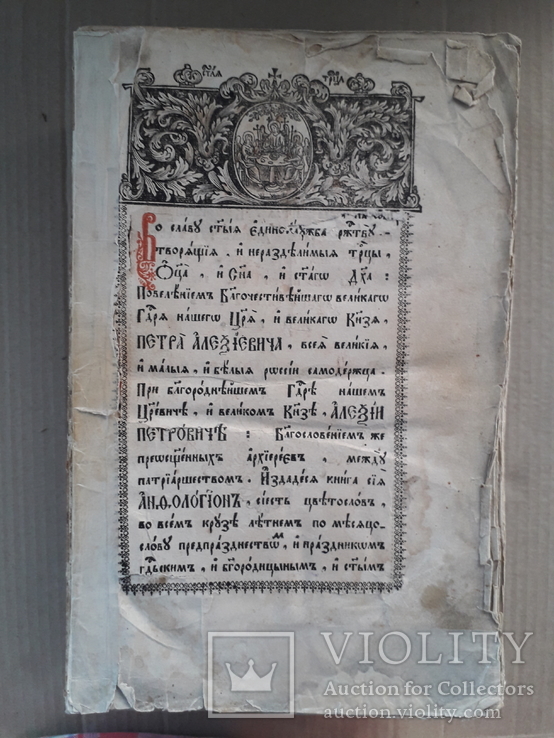 ст҃аѧ трⷪ҇ца
Во славу ст҃ыѧ єдиносꙋщныѧ животворѧщїѧ
творѧщїѧ . и нераздѣлимыѧ трⷪ҇цы ,
Ѻц҃а , и сн҃а , и ст҃агѡ дх҃а :
Повелѣнїемъ благочестивѣйшагѡ великагѡ
гдⷭ҇рѧ нашегѡ цр҃ѧ , и великагѡ кн҃зѧ ,
ПЕТРА АЛЕѮІЕВИЧА , всеѧ великїѧ ,
и малыѧ , и бѣлыѧ рѡссїи самодержца .
При благороднѣйшемъ гдⷭ҇рѣ нашемъ
цр҃евичѣ , и великомъ кн҃зѣ , АЛЕѮІИ
ПЕТРОВИЧѢ : Благословенїемъ же
преѡсщ҃енныхъ архїереєвъ , междꙋ
патрїаршествомъ . Издадесѧ книга сїѧ
АНѲОЛОГІОНЪ , сїесть цвѣтословъ ,
во всемъ крꙋзѣ лѣтнемъ по мѣсѧцо-
словꙋ предпразднествѡмъ , и праздникѡмъ
гдⷭ҇ьскимъ , и бг҃ородицынымъ , и ст҃ымъ
VIOLITY
Auction for Collectors
auction.violity.com